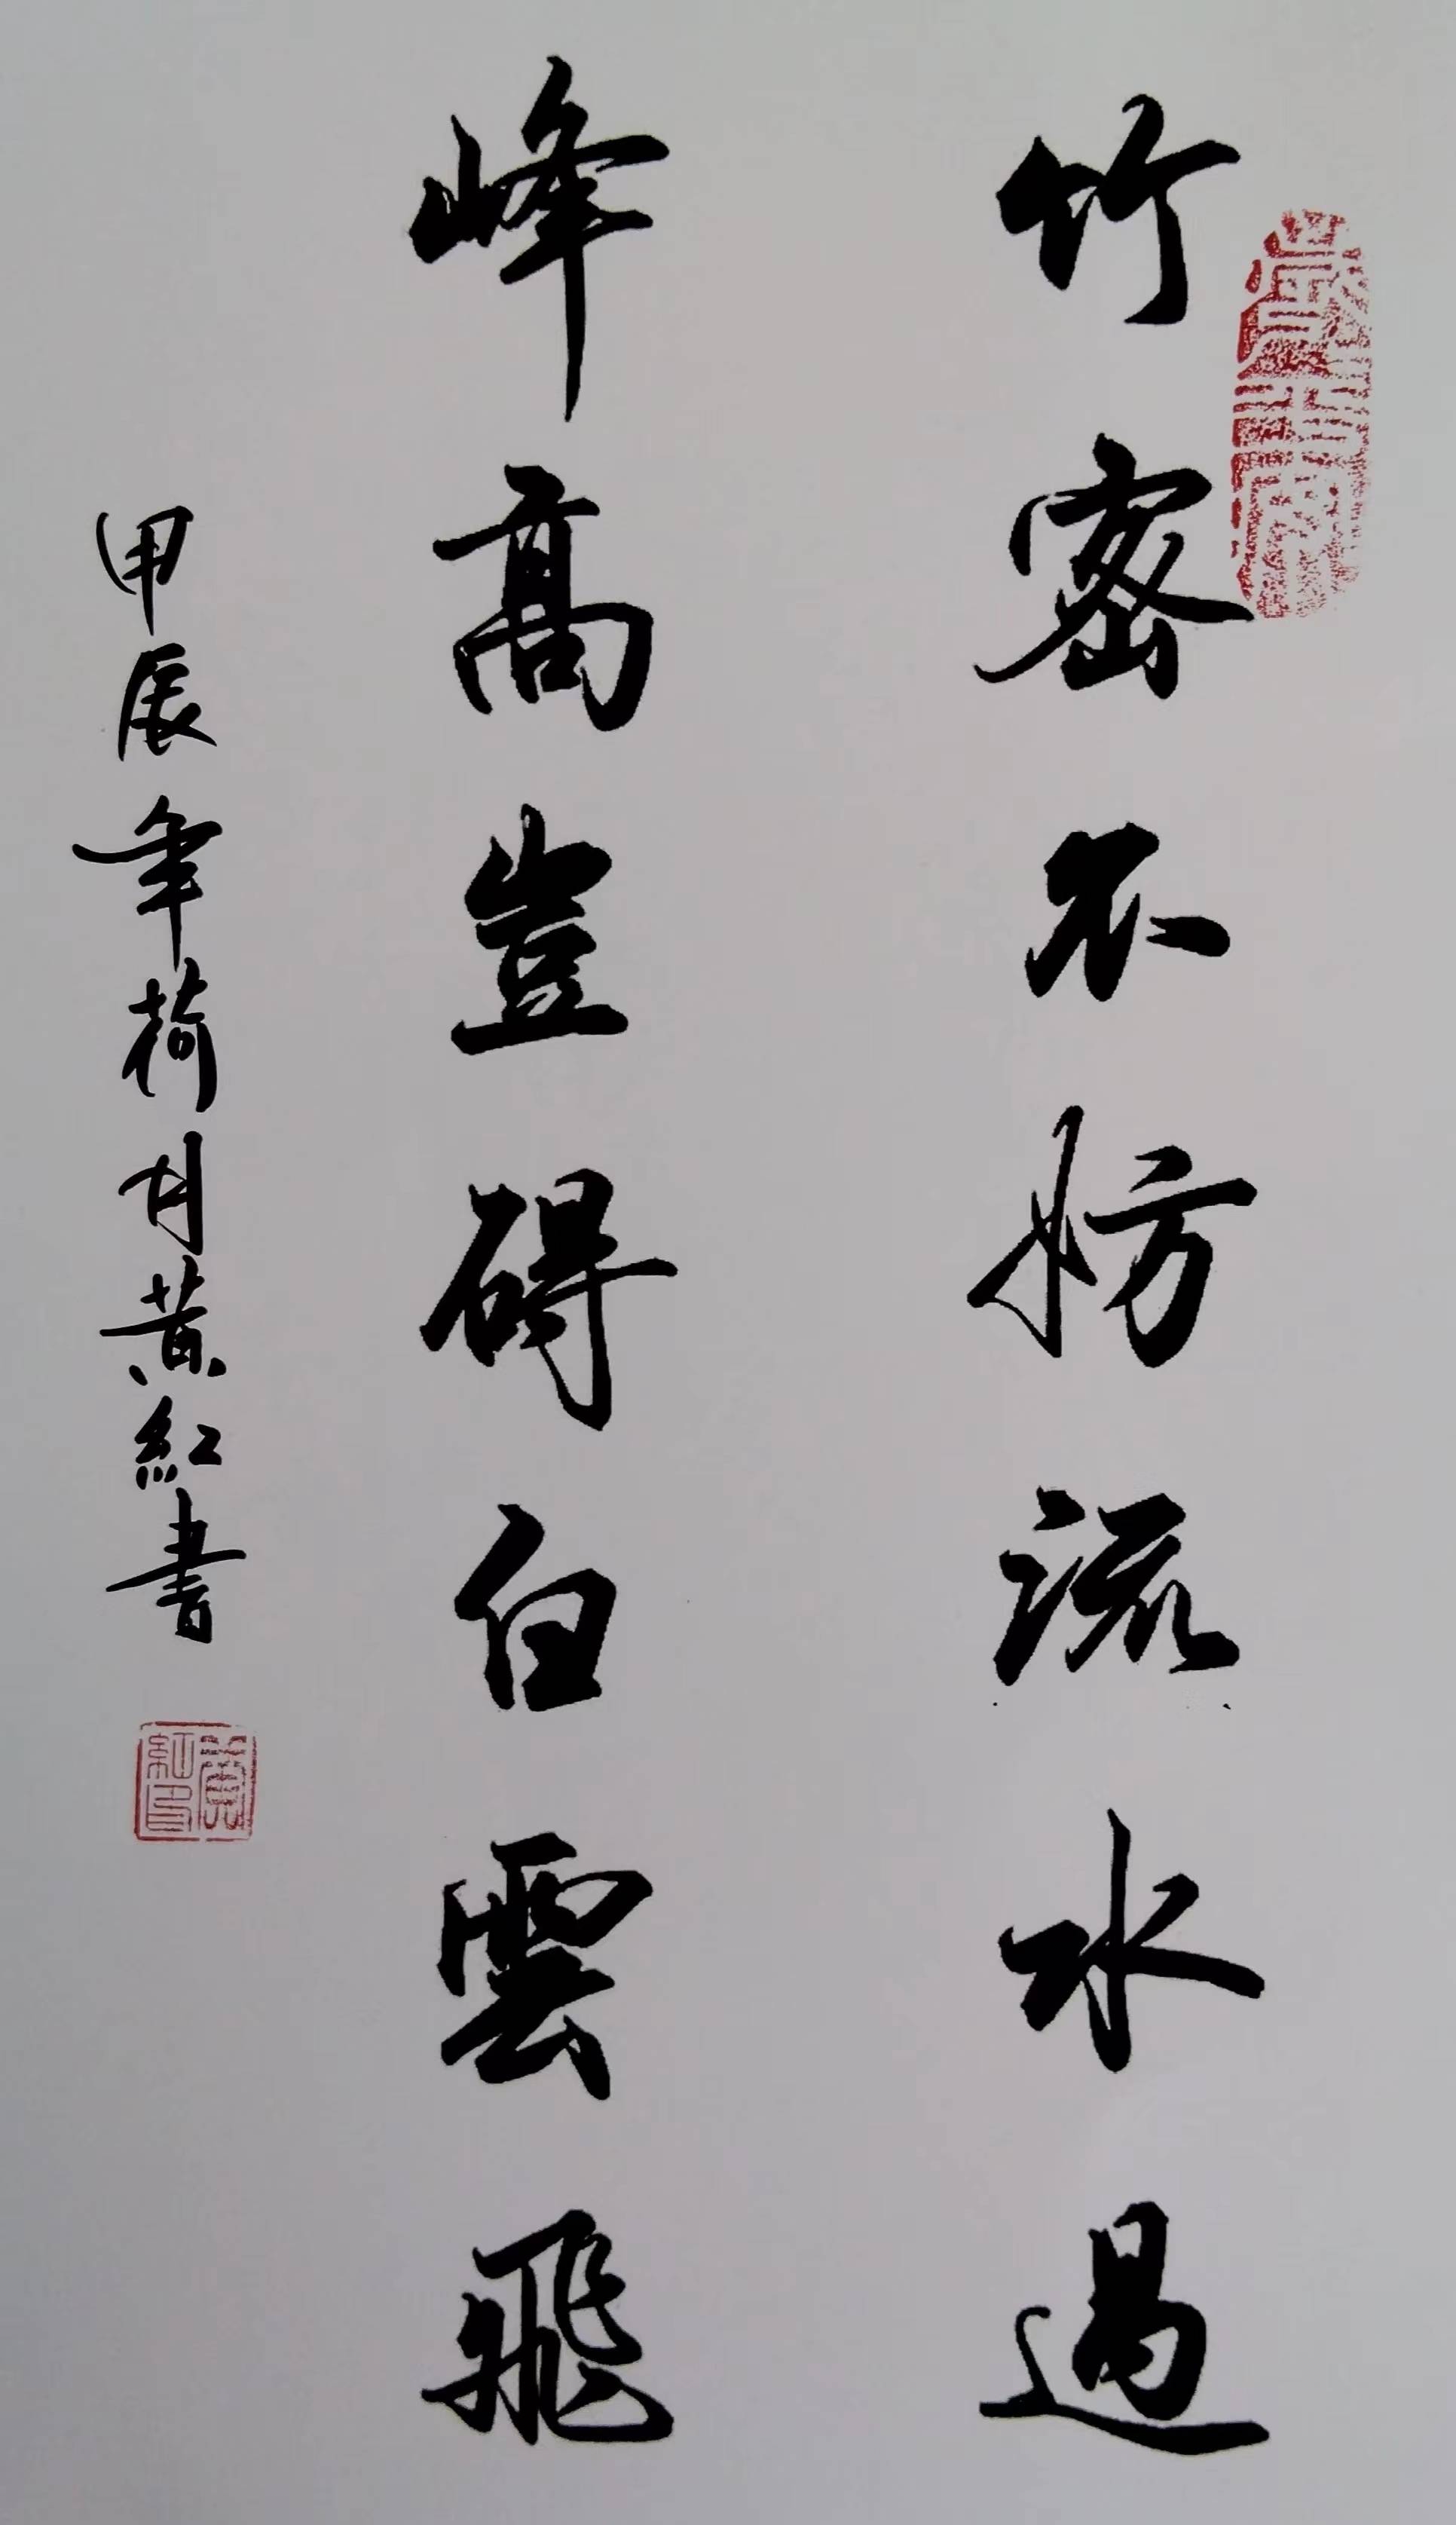 竹密不妨流水過
峰高豈碍白雲飛
甲辰年荷月黄紅書
黄紅印